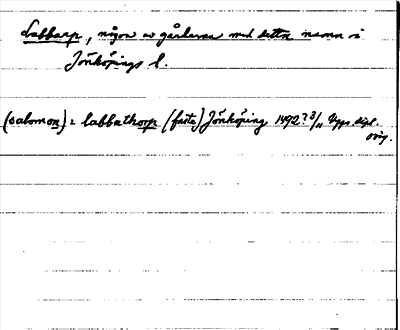 Labbarp, någon av gårdarna med detta namn i
Jönköpings l.
(salomon) i labbathorp (faste) Jönköping 1492? 3/11 Upps dipl.
orig.